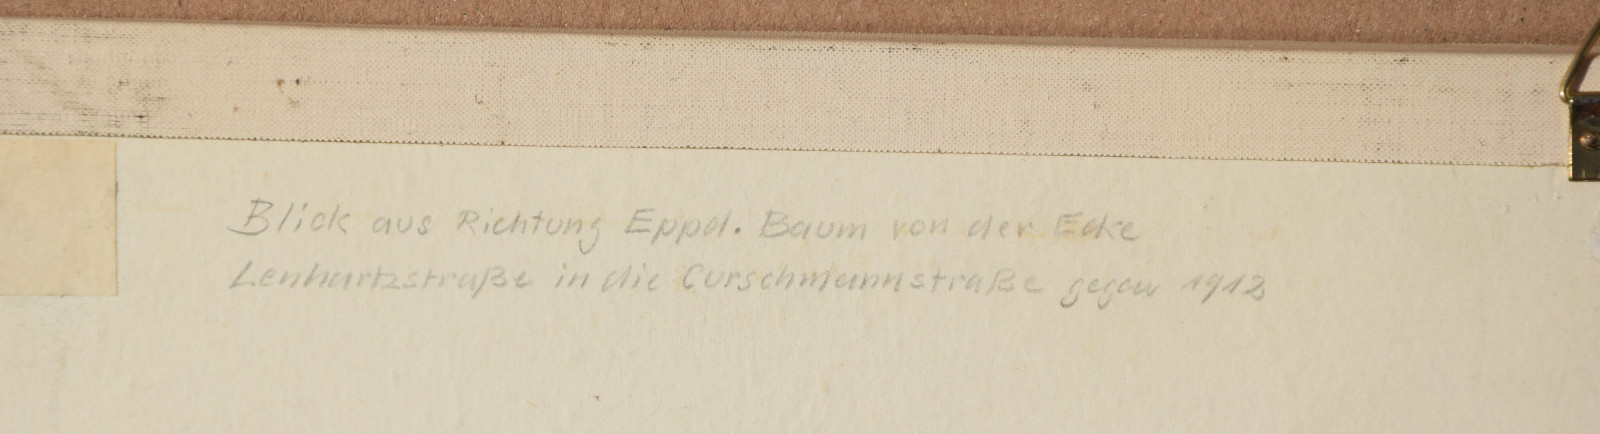 Blick aus Richtung Eppd. Baum von der Ecke
Lenhartzstraße in die Curschmannstraße gegen 1912